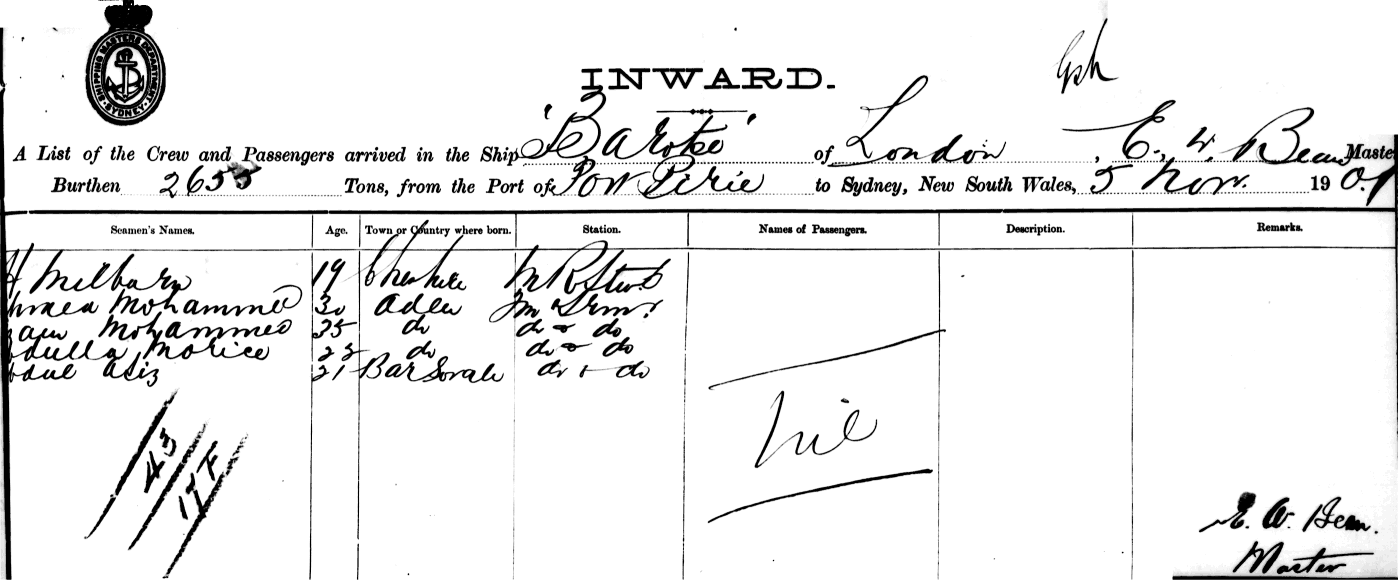 SHIPPING MASTERS DEPARTMENT SYDNEY
INWARD.
A List of the Crew and Passengers arrived in the Ship "Barotse" of London, E. W. Bean Maste
Burthen 2655 Tons, from the Port of Port Pirie to Sydney, New South Wales, 5 Nov. 190
Seamen's Names. Age. Town or Country where born. Station. Names of Passengers. Description. Remarks.
H Milburn 19 Cheshire M R Stwd
Mohammed 30 Aden
Mohammed 35 do do & do
Morice do do & do
Asiz 21 do & do
Nil
43
17 F
E. W. Bean.
Master